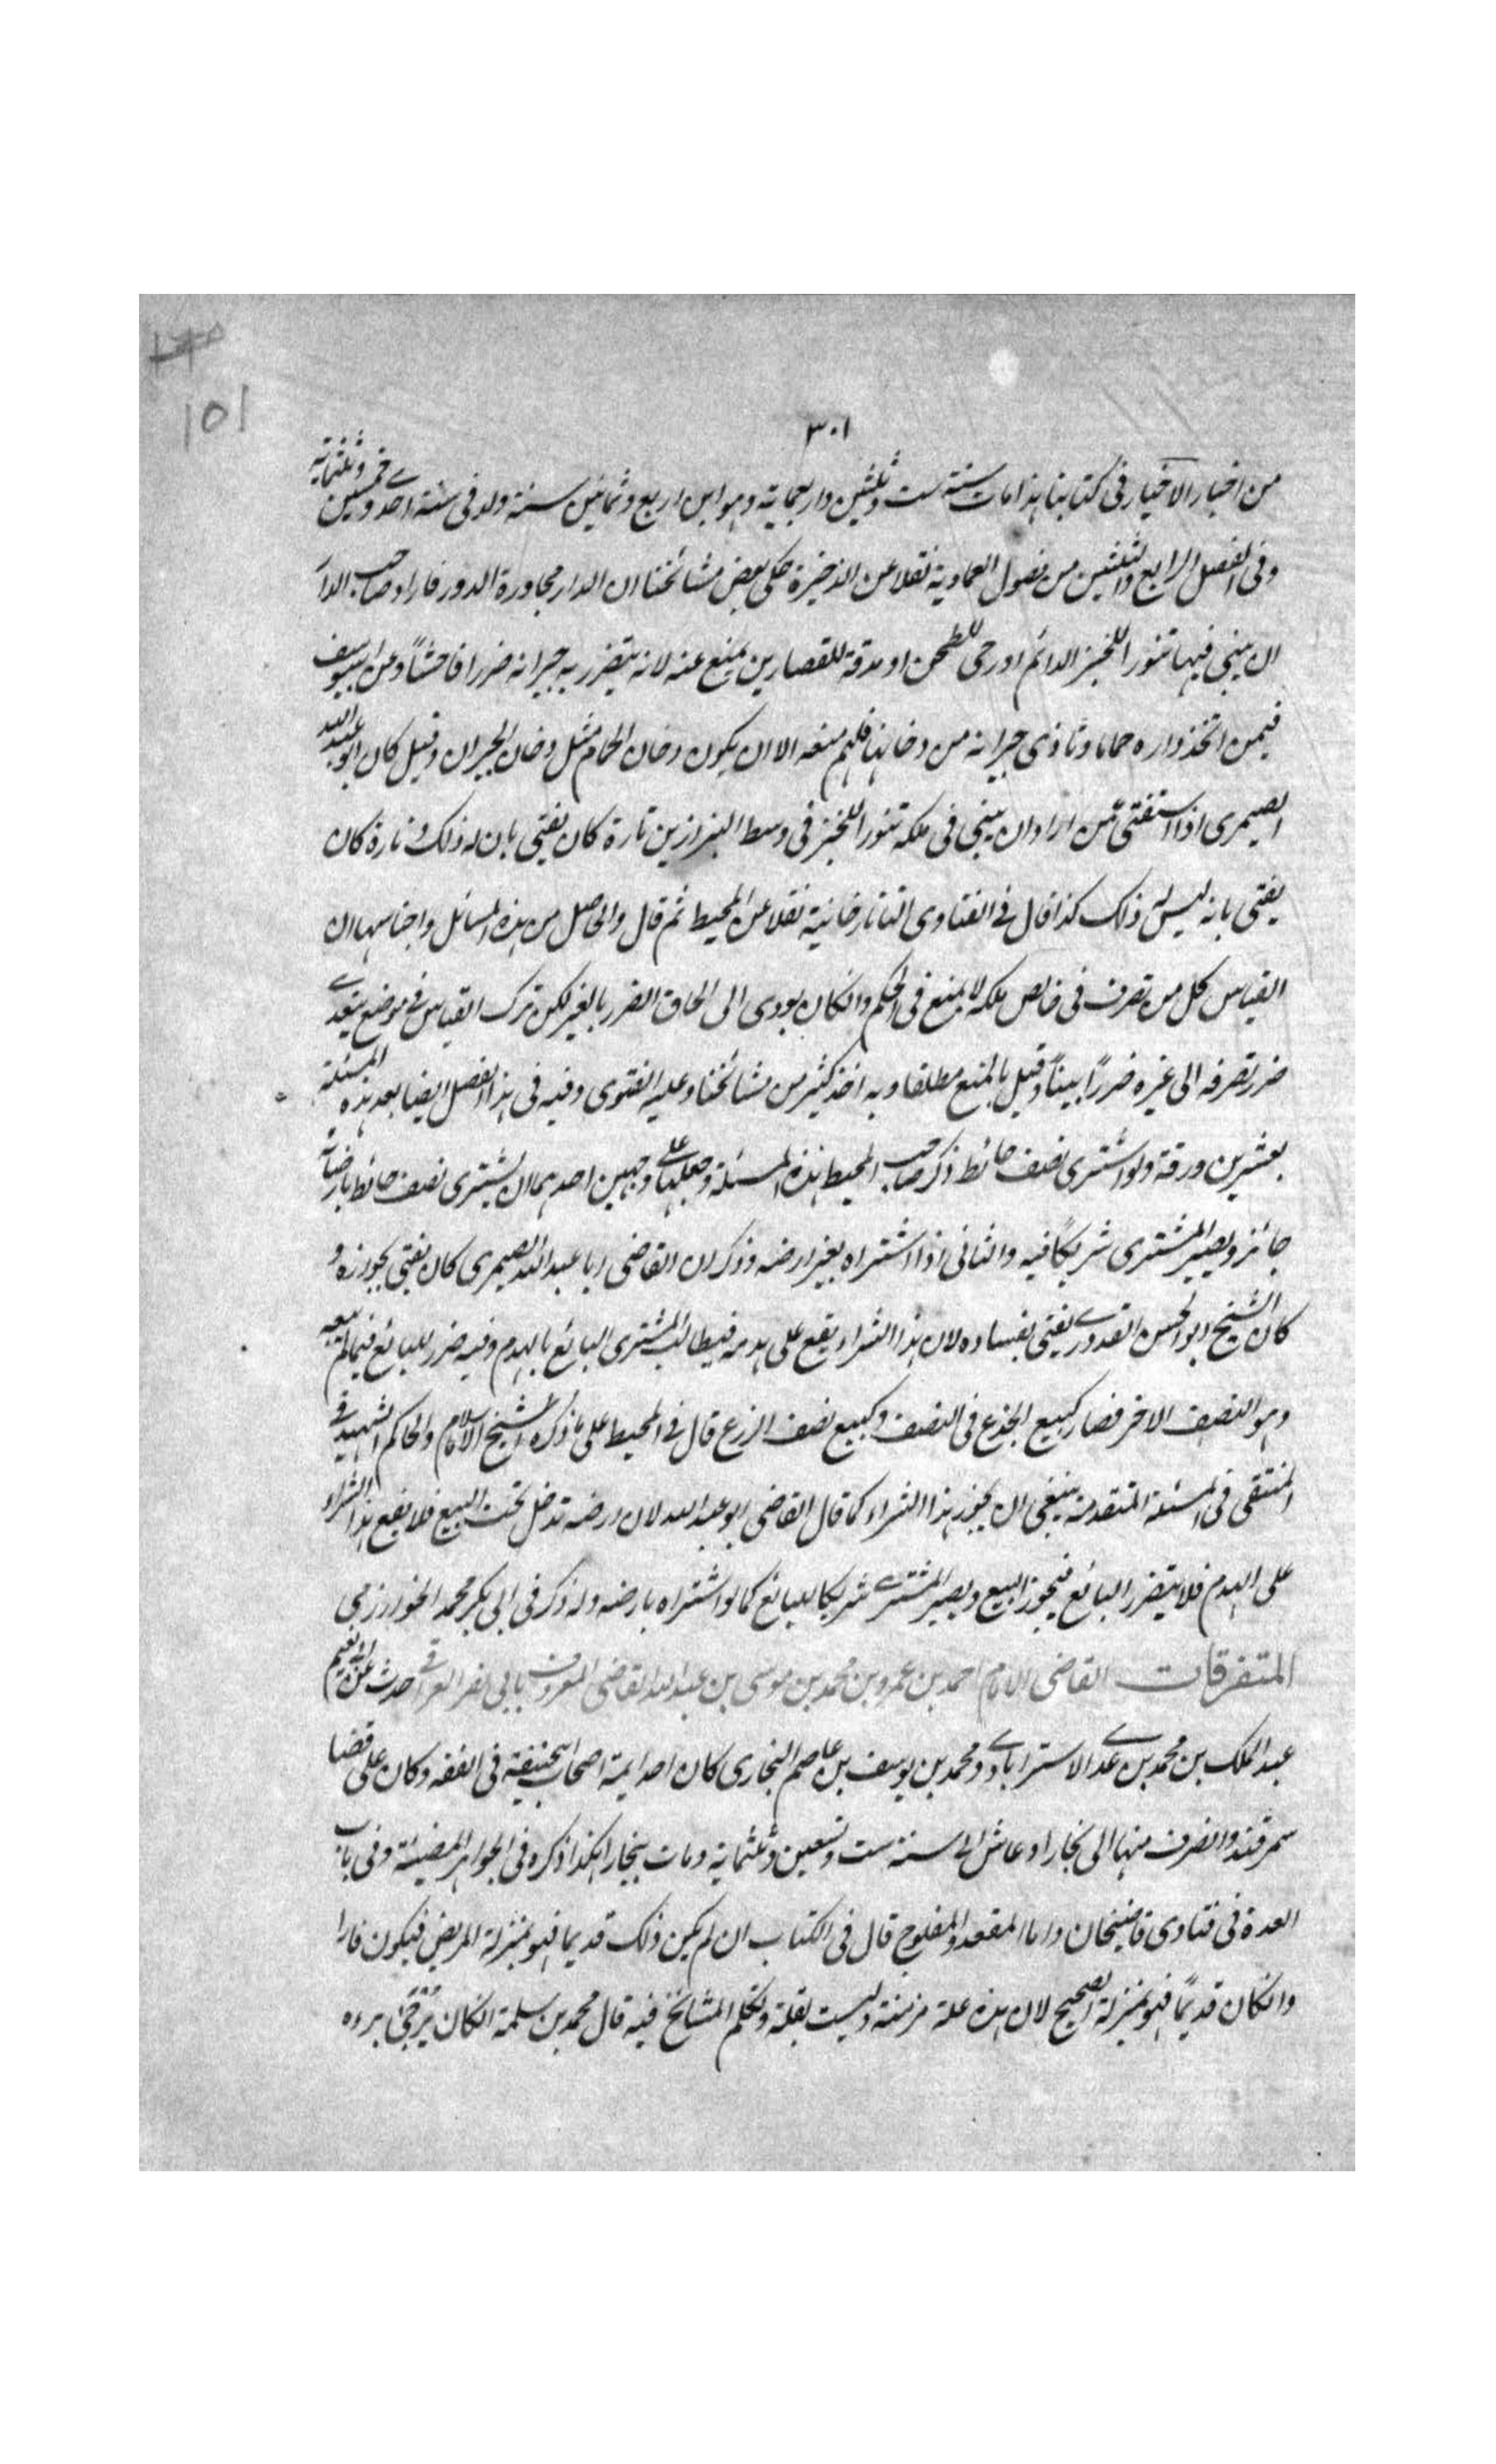 ١٥١
٣٠١
من اخبار الاخيار فى كتابنا هذا مات سنة ست وثلثين واربعماية وهو ابن اربع وثمانين سنة ولد فى سنة احدى وخمسين وثلثماية
وفى الفصل الرابع والثلثين من فصول العمادية نقلا عن الذخيرة حكى بعض مشائخنا ان الدار مجاورة الدور فاراد صاحب الدار
ان يبنى فيها تنورا للخبز الدائم او رحى للطحن او مدقة للقصارين يمنع عنه لانه يتضرر به جيرانه ضررا فاحشاً وعن ابى يوسف
فيمن اتخذ داره حماما وتاذى جيرانه من دخانها فلهم منعه الا ان يكون دخان الحمام مثل دخان الجيران وقيل كان ابو عبد الله
الصيمرى اذا استفتى عمّن اراد ان يبنى فى ملكه تنورا للخبز فى وسط البزازين تارة كان يفتى بان له ذلك و تارة كان
يفتى بانه ليس له ذلك كذا قال فى الفتاوى التاتارخانية نقلا عن المحيط ثم قال والحاصل من هذه المسائل واجناسها ان
القياس كل من تصرف فى خالص ملكه لا يمنع فى الحكم وان كان يودى الى الحاق الضرر بالغير لكن ترك القياس فى موضع يتعدى
ضرر تصرفه الى غيره ضررًا بيناً وقيل بالمنع مطلقا وبه اخذ كثير من مشائخنا وعليه الفتوى وفيه فى هذا الفصل ايضا بعد هذه المسئلة
بعشرين ورقة ولو اشترى نصف حائط ذكر صاحب المحيط هذه المسئلة وجعلها على وجهين احدهما ان يشترى نصف حائط بارضه انه
جائز ويصير المشترى شريكًا فيه والثانى اذا اشتراه بغير ارضه وذكر ان القاضى ابا عبد الله الصيمرى كان يفتى بجوازه و
كان الشيخ ابو الحسن القدورى يفتى بفساده لان هذا الشراء يقع على هدمه فيطالب المشترى البائع بالهدم وفيه ضرر للبائع فيما لم يبعه
وهو النصف الاخر فصار كبيع الجذع فى السقف وكبيع نصف الزرع قال فى المحيط على ما ذكره الشيخ الاسلام والحاكم الشهيد فى
المنتقى فى المسئلة المتقدمة ينبغى ان يجوز هذا الشراء كما قال القاضى ابو عبد الله لان ارضه تدخل تحت البيع فلا يقع هذا الشراء
على الهدم فلا يتضرر البائع فيجوز البيع ويصير المشترى شريكا للبائع كما لو اشتراه بارضه وله ذكر فى ابى بكر محمد الخوارزمى
المتفرقات القاضى الامام احمد بن عمرو بن محمد بن موسى بن عبد الله القاضى المعروف بابى نصر العراقى حدث عن ابى نعيم
عبد الملك بن محمد بن عدى الاسترابادى ومحمد بن يوسف بن عاصم البخارى كان احد ايمة اصحاب ابيحنيفة فى الفقه وكان على قضا
سمرقند وانصرف منها الى بخارا وعاش الى سنة ست وتسعين وثلثماية ومات ببخارا هكذا ذكره فى الجواهر المضيئة وفى باب
العدة فى فتاوى قاضيخان واما المقعد والمفلوج قال فى الكتاب ان لم يكن ذلك قديما فهو بمنزلة المريض فيكون فارا
وان كان قديمًا فهو بمنزلة الصحيح لان هذه علة مزمنة وليست بقلة وتكلم المشائخ فيه قال محمد بن سلمة ان كان يُرْجَى برءه